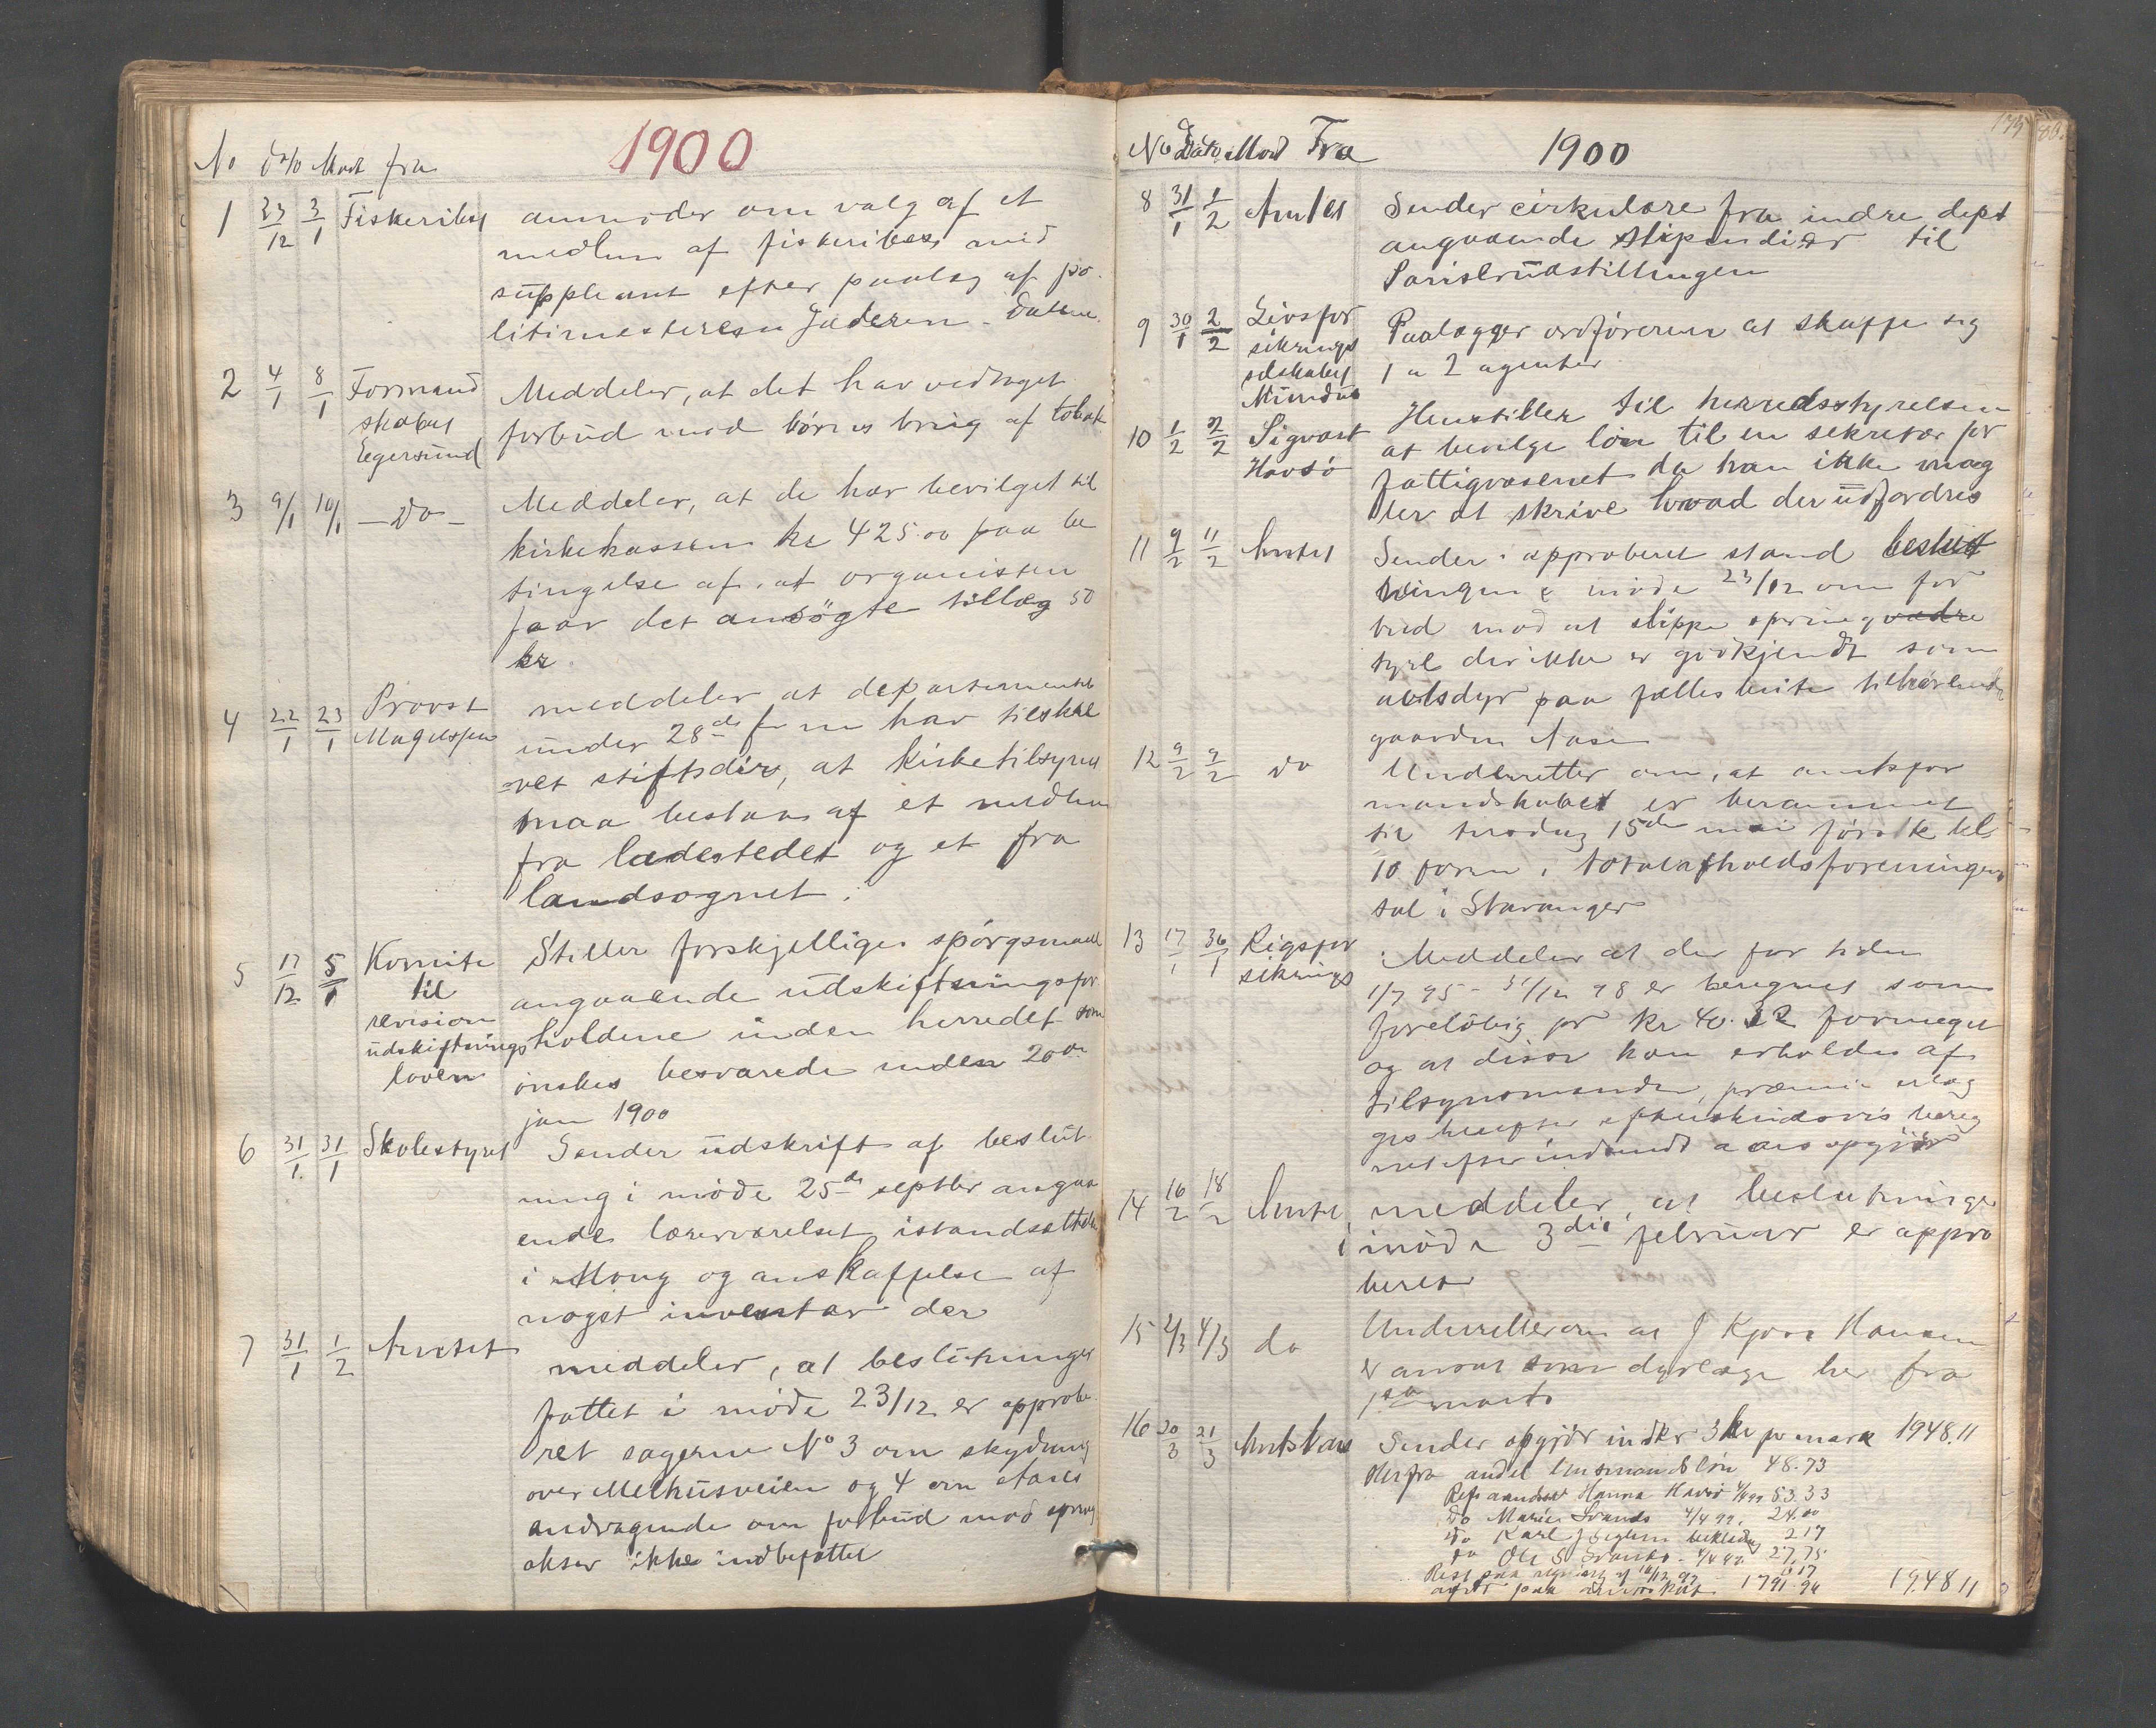 No dato Mod fra 1900
1 23/12 3/1 Fiskeribest anmoder om valg af et
medlem af fiskeribest med
suppleant efter paalæg af po-
litimesteren Jæderen - Dalene.
2 4/1 8/1 Formand Meddeler, at det har vedtaget
skabet forbud mod börns brug af tobak
Egersund
3 9/1 10/1 - do - Meddeler, at de har bevilget til
kirkekassen kr 425.00 paa be
tingelse af, at organisten
faar det ansögte tillæg 50
kr.
4 22/1 23/1 Provst meddeler at departementet
Magelssen under 28de f m har tilskre
vet stiftsdir, at kirketilsynet
maa bestaa af et medlem
fra ladestedet og et fra
landsognet.
5 17/12 5/1 Komite Stiller forskjellige spörgsmaal
til angaaende udskiftningsfor
revision holdene inden herredet som
udskiftnings önskes besvarede inden 20de
loven jan 1900
6 31/1 31/1 Skolestyret Sender udskrift af beslut
ning i möde 25de septbr angaa
ende lærerværelset istandsættelse
i Mong og anskaffelse af
noget inventar der
7 31/1 1/2 Amtet meddeler, at beslutninger
fattet i möde 23/12 er approbe
ret sagerne No 3 om skydning
over Melhusveien og 4 om Aases
andragende om forbud mod spring
okser ikke indbefattet
No Dato Mod Fra 1900
8 31/1 1/2 Amtet Sender cirkulære fra indre dept
angaaende stipendier til
Pariserudstillingen
9 30/1 2/2 Livsfor Paalægger ordföreren at skaffe sig
sikrings 1 a 2 agenter
selskabet
Mundus
10 1/2 2/2 Sigvart Henstiller til herredsstyrelsen
Havsö at bevilge lön til en sekretær for
fattigvæsenet da han ikke mæg
ter at skrive hvad der udfordres
11 9/2 11/2 Amtet Sender i approberet stand beslut
ningen i möde 23/12 om for
bud mod at slippe springvædre
tyre der ikke er godkjendt som
avlsdyr paa fælles beite tilhörende
gaarden Aase
12 9/2 9/2 do Underretter om, at amtsfor
mandskabet er berammet
til tirsdag 15de mai förstk kl
10 form i totalafholdsforeningens
sal i Stavanger
13 17/1 30/1 Rigsfor Meddeler at der for tiden
sikrings 1/7 95 - 31/12 98 er beregnet som
forelöbig pr kr 40.32 formeget
og at disse kan erholdes af
tilsynsmanden, præmie erlæg
ges herefter
14 16/2 18/2 Amtet meddeler, at beslutninger
i möde 3die februar er appro
beret
15 2/3 4/3 do Underretter om at J Kjos Hansen
er ansat som dyrlæge her fra
1ste marts
16 20/3 21/3 Amtskas Sender opgjör indkr 3 kr pr mark 1948.11
Herfra andel lensmandslön 48.73
Ref aandsv Hanna Havsö 53.33
Do Marie Svands 24.00
Do Karl J 2.17
Do Ole S 27,75
1791.96 1948 11